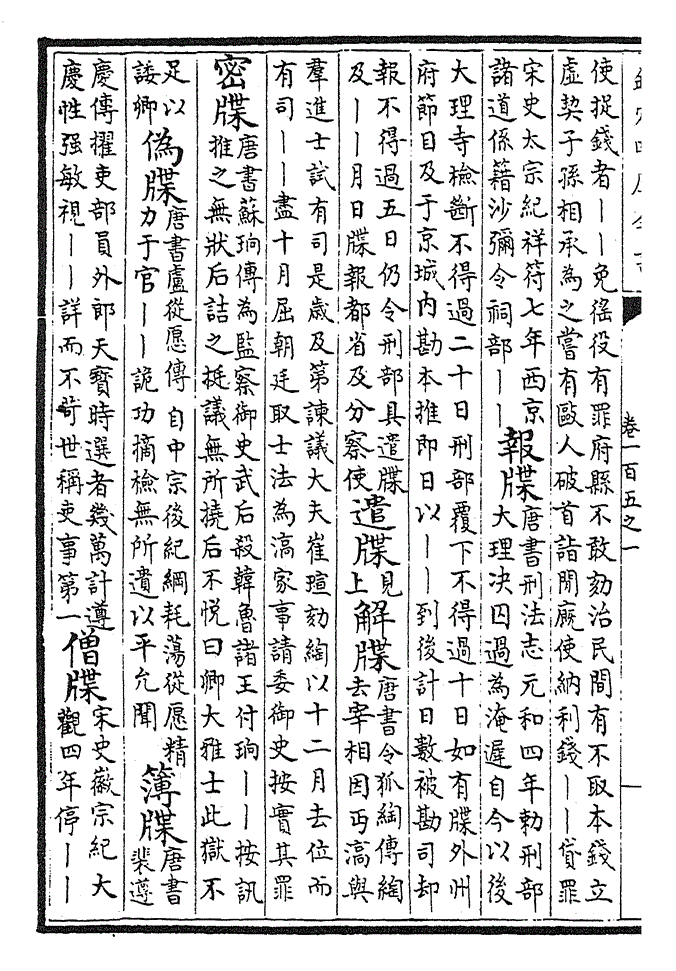 卷一百五之一
使捉錢者丨丨免徭役有罪府縣不敢劾治民間有不取本錢立
虚契子孫相承為之嘗有毆人破首詣閒廐使納利錢丨丨貸罪
宋史太宗紀祥符七年西京
諸道係籍沙彌令祠部丨丨
報牒
唐書刑法志元和四年勅刑部
大理决囚過為淹遲自今以後
大理寺檢斷不得過二十日刑部覆下不得過十日如有牒外州
府節目及于京城内勘本推即日以丨丨到後計日數被勘司却
報不得過五日仍令刑部具遣牒
及丨丨月日牒報都省及分察使
遣牒
見
上
解牒
唐書令狐綯傳綯
去宰相因丐滈與
羣進士試有司是歲及第諫議大夫崔瑄劾綯以十二月去位而
有司丨丨盡十月屈朝廷取士法為滈家事請委御史按實其罪
密牒
唐書蘇珦傳為監察御史武后殺韓魯諸王付珦丨丨按訊
推之無狀后詰之挺議無所撓后不悦曰卿大雅士此獄不
足以
諉卿
偽牒
唐書盧從愿傳自中宗後紀綱耗蕩從愿精
力于官丨丨詭功摘檢無所遺以平允聞
簿牒
唐書
裴遵
慶傳擢吏部員外郎天寳時選者幾萬計遵
慶性强敏視丨丨詳而不苛世稱吏事第一
僧牒
宋史徽宗紀大
觀四年停丨丨